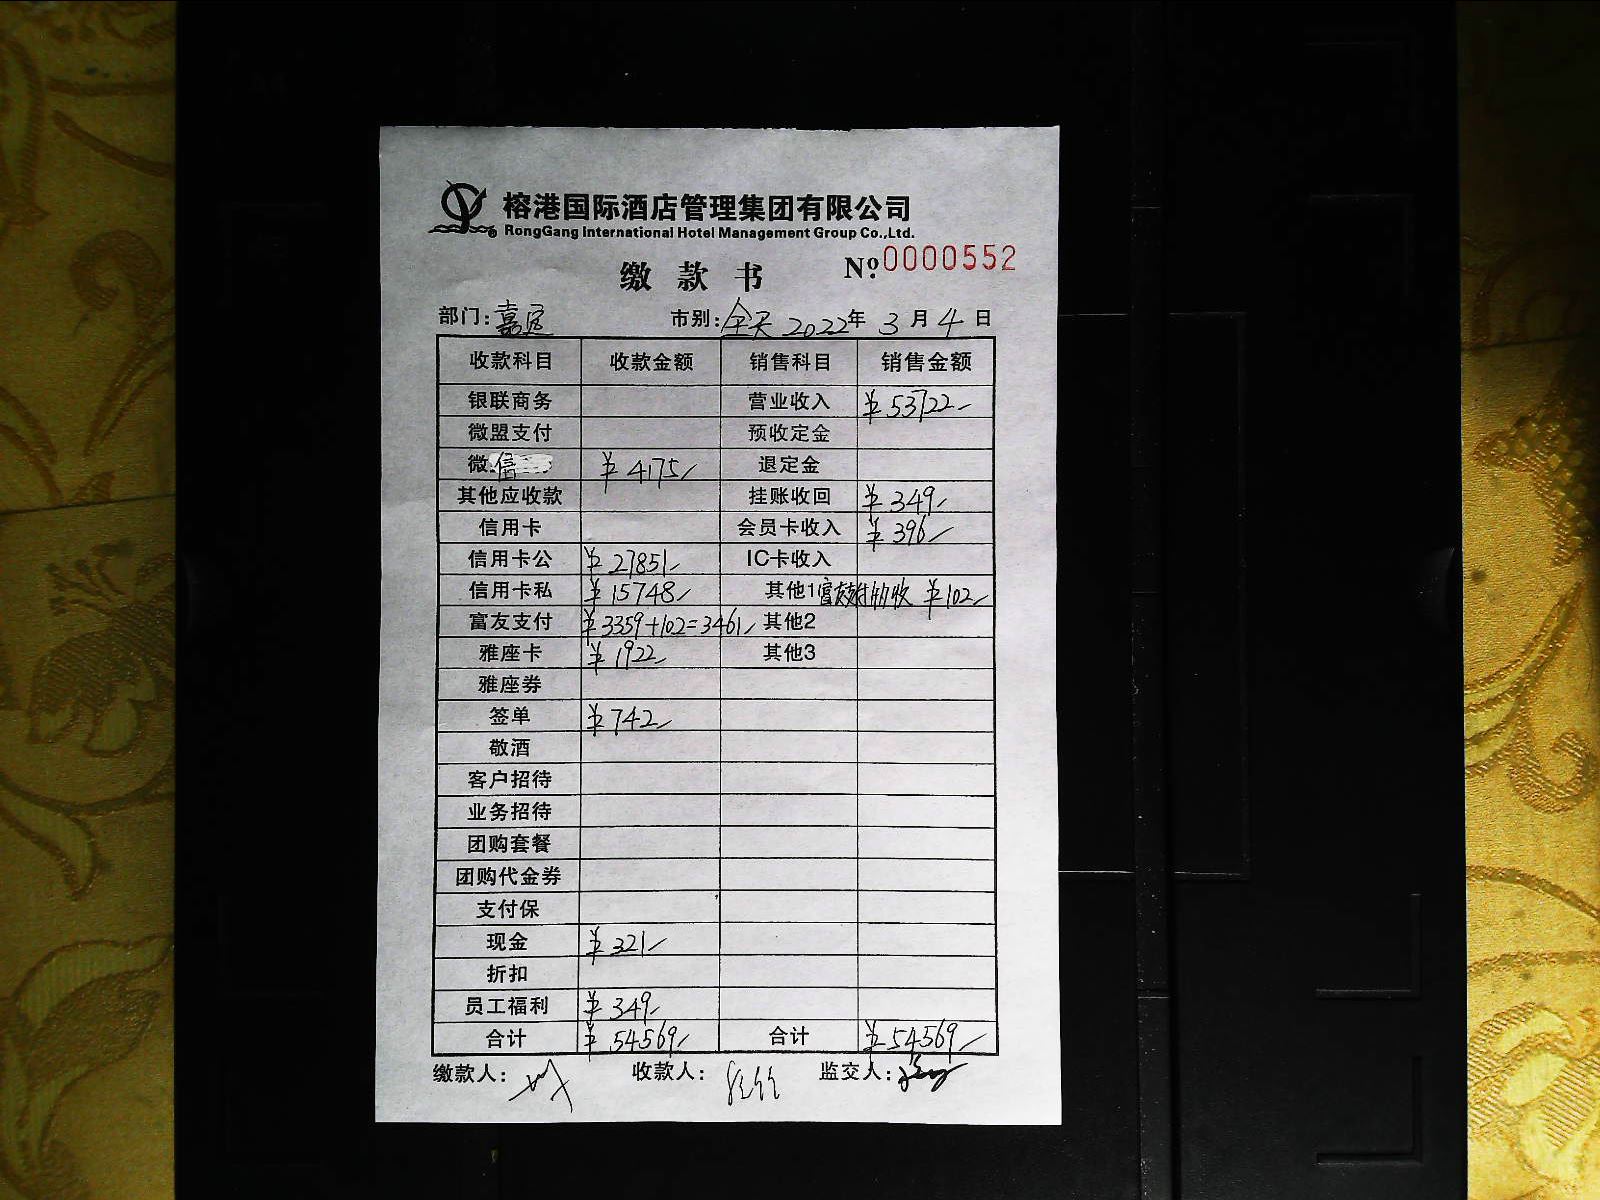 榕港国际酒店管理集团有限公司
RongGang International Hotel Management Group Co.,Ltd.
缴款书 Nº 0000552
部门:嘉定 市别:全天 2022年3月4日
收款科目 收款金额 销售科目 销售金额
银联商务 营业收入 ¥53722
微盟支付 预收定金
微信 ¥4175 退定金
其他应收款 挂账收回 ¥349
信用卡 会员卡收入 ¥396
信用卡公 ¥27851 IC卡收入
信用卡私 ¥15748 其他1富友支付外收 ¥102
富友支付 ¥3359+102=3461 其他2
雅座卡 ¥1922 其他3
雅座券
签单 ¥742
敬酒
客户招待
业务招待
团购套餐
团购代金券
支付保
现金 ¥321
折扣
员工福利 ¥349
合计 ¥54569 合计 ¥54569
缴款人: 收款人: 监交人: